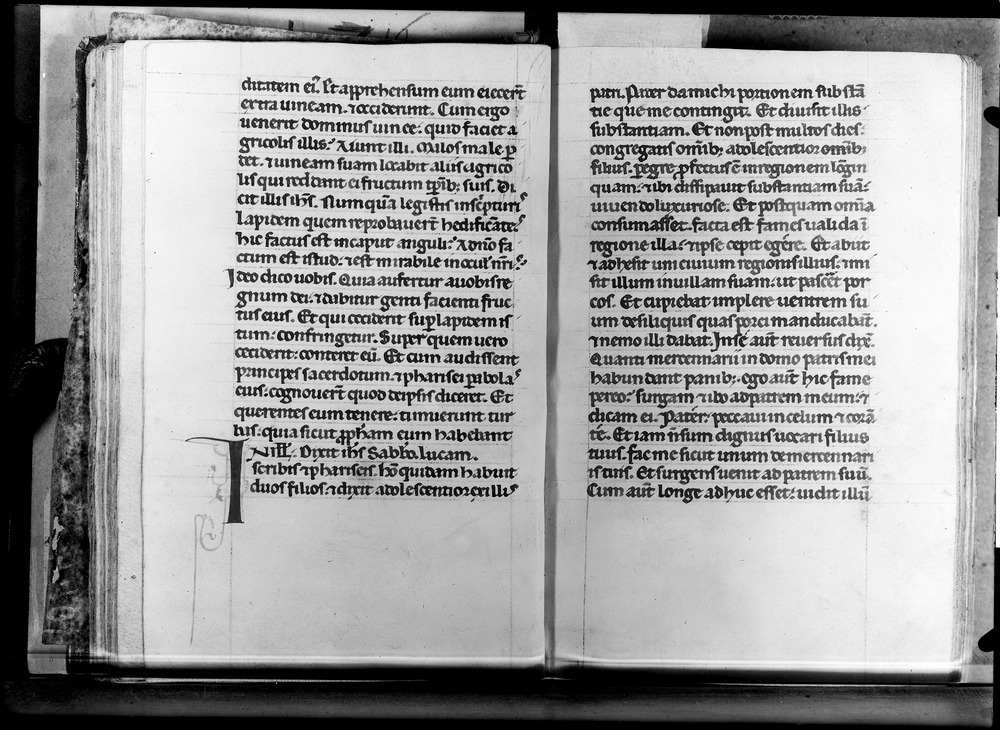 ditatem ei᷒. Et apprehensum eum eiecer̄t
extra uineam. ⁊ occiderunt. Cum ergo
uenerit dominus uinee: quid faciet a
gricolis illis? Aiunt illi. Malos male ꝑ
det. ⁊ uineam suam locabit aliis agrico
lis qui reddant ei fructum tꝑib; suis. Di
cit illis ih̄s. Nunquā legistis in sc̄pturis
Lapidem quem reprobauer̄t hedificātes
hic factus est in caput anguli? A dn̄o fa
ctum est istud: ⁊ est mirabile in ocul᷒ nr̄is
Ideo dico uobis. Quia auferetur a uobis re
gnum dei. ⁊ dabitur genti facienti fruc
tus eius. Et qui ceciderit sup̄ lapidem is
tum: confringetur. Super quem uero
ceciderit: conteret eū. Et cum audissent
principes sacerdotum. ⁊ pharisei ꝑabolas
eius: cognouer̄t quod de ip̄sis diceret. Et
querentes eum tenere: timuerunt tur
bas: quia sicut ꝓph̄am eum habebant
IN ill̄. Dixit ih̄s Sabb̄o. lucam.
scribis ⁊ phariseis. hō quidam habuit
duos filios. ⁊ dixit adolescentior ex illis
patri. Pater da michi portionem substā
tie que me contingit. Et diuisit illis
substantiam. Et non post multos dies:
congregatis om̄ib; adolescentior om̄ib;
filius. ꝑegre ꝓfectus ē in regionem lōgin
quam: ⁊ ibi dissipauit substantiam suā:
uiuendo luxuriose. Et postquam om̄ia
consumasset. facta est fames ualida ī
regione illa: ⁊ ipse cepit egére. Et abiit
⁊ adhesit uni ciuium regionis illius. ⁊ mi
sit illum in uillam suam: ut pascer̄t por
cos. Et cupiebat implere uentrem su
um de siliquis quas porci manducabāt.
⁊ nemo illi dabat. In sé aūt reuersus dix̄.
Quanti mercennarii in domo patris mei
habundant panib; ego aūt hic fame
pereo: surgam ⁊ ibo ad patrem meum: ⁊
dicam ei. Pater: peccaui in celum ⁊ corā
té. Et iam n̄ sum dignus uocari filius
tuus. fac me sicut unum de mercennari
is tuis. Et surgens uenit ad patrem suū.
Cum aūt longe adhuc esset: uidit illū